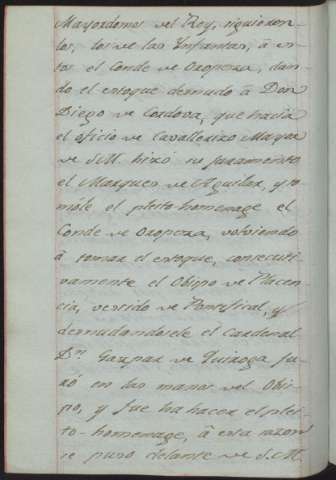 Mayordomos del Rey, siguieron
los, los de las Ynfantas, â es-
tos el Conde de Oropeza, dan-
do el estoque desnudo â Don
Diego de Cordova, que hacia
el oficio de Cavallerizo Mayor
de S.M. hizò su juramento
el Marques de Aguilar, y to-
móle el pleito homenage el
Conde de Oropeza, volviendo
â tomar el estoque, consecuti-
vamente el Obispo de Placen-
cia, vestido de Pontifical, y
desnudandosele el Cardenal
Dn. Gaspar de Quiroga ju-
ró en las manos del Obis-
po, y fue ha hacer el plei-
to-homenage, â esta razon
se puso delante de S.M.